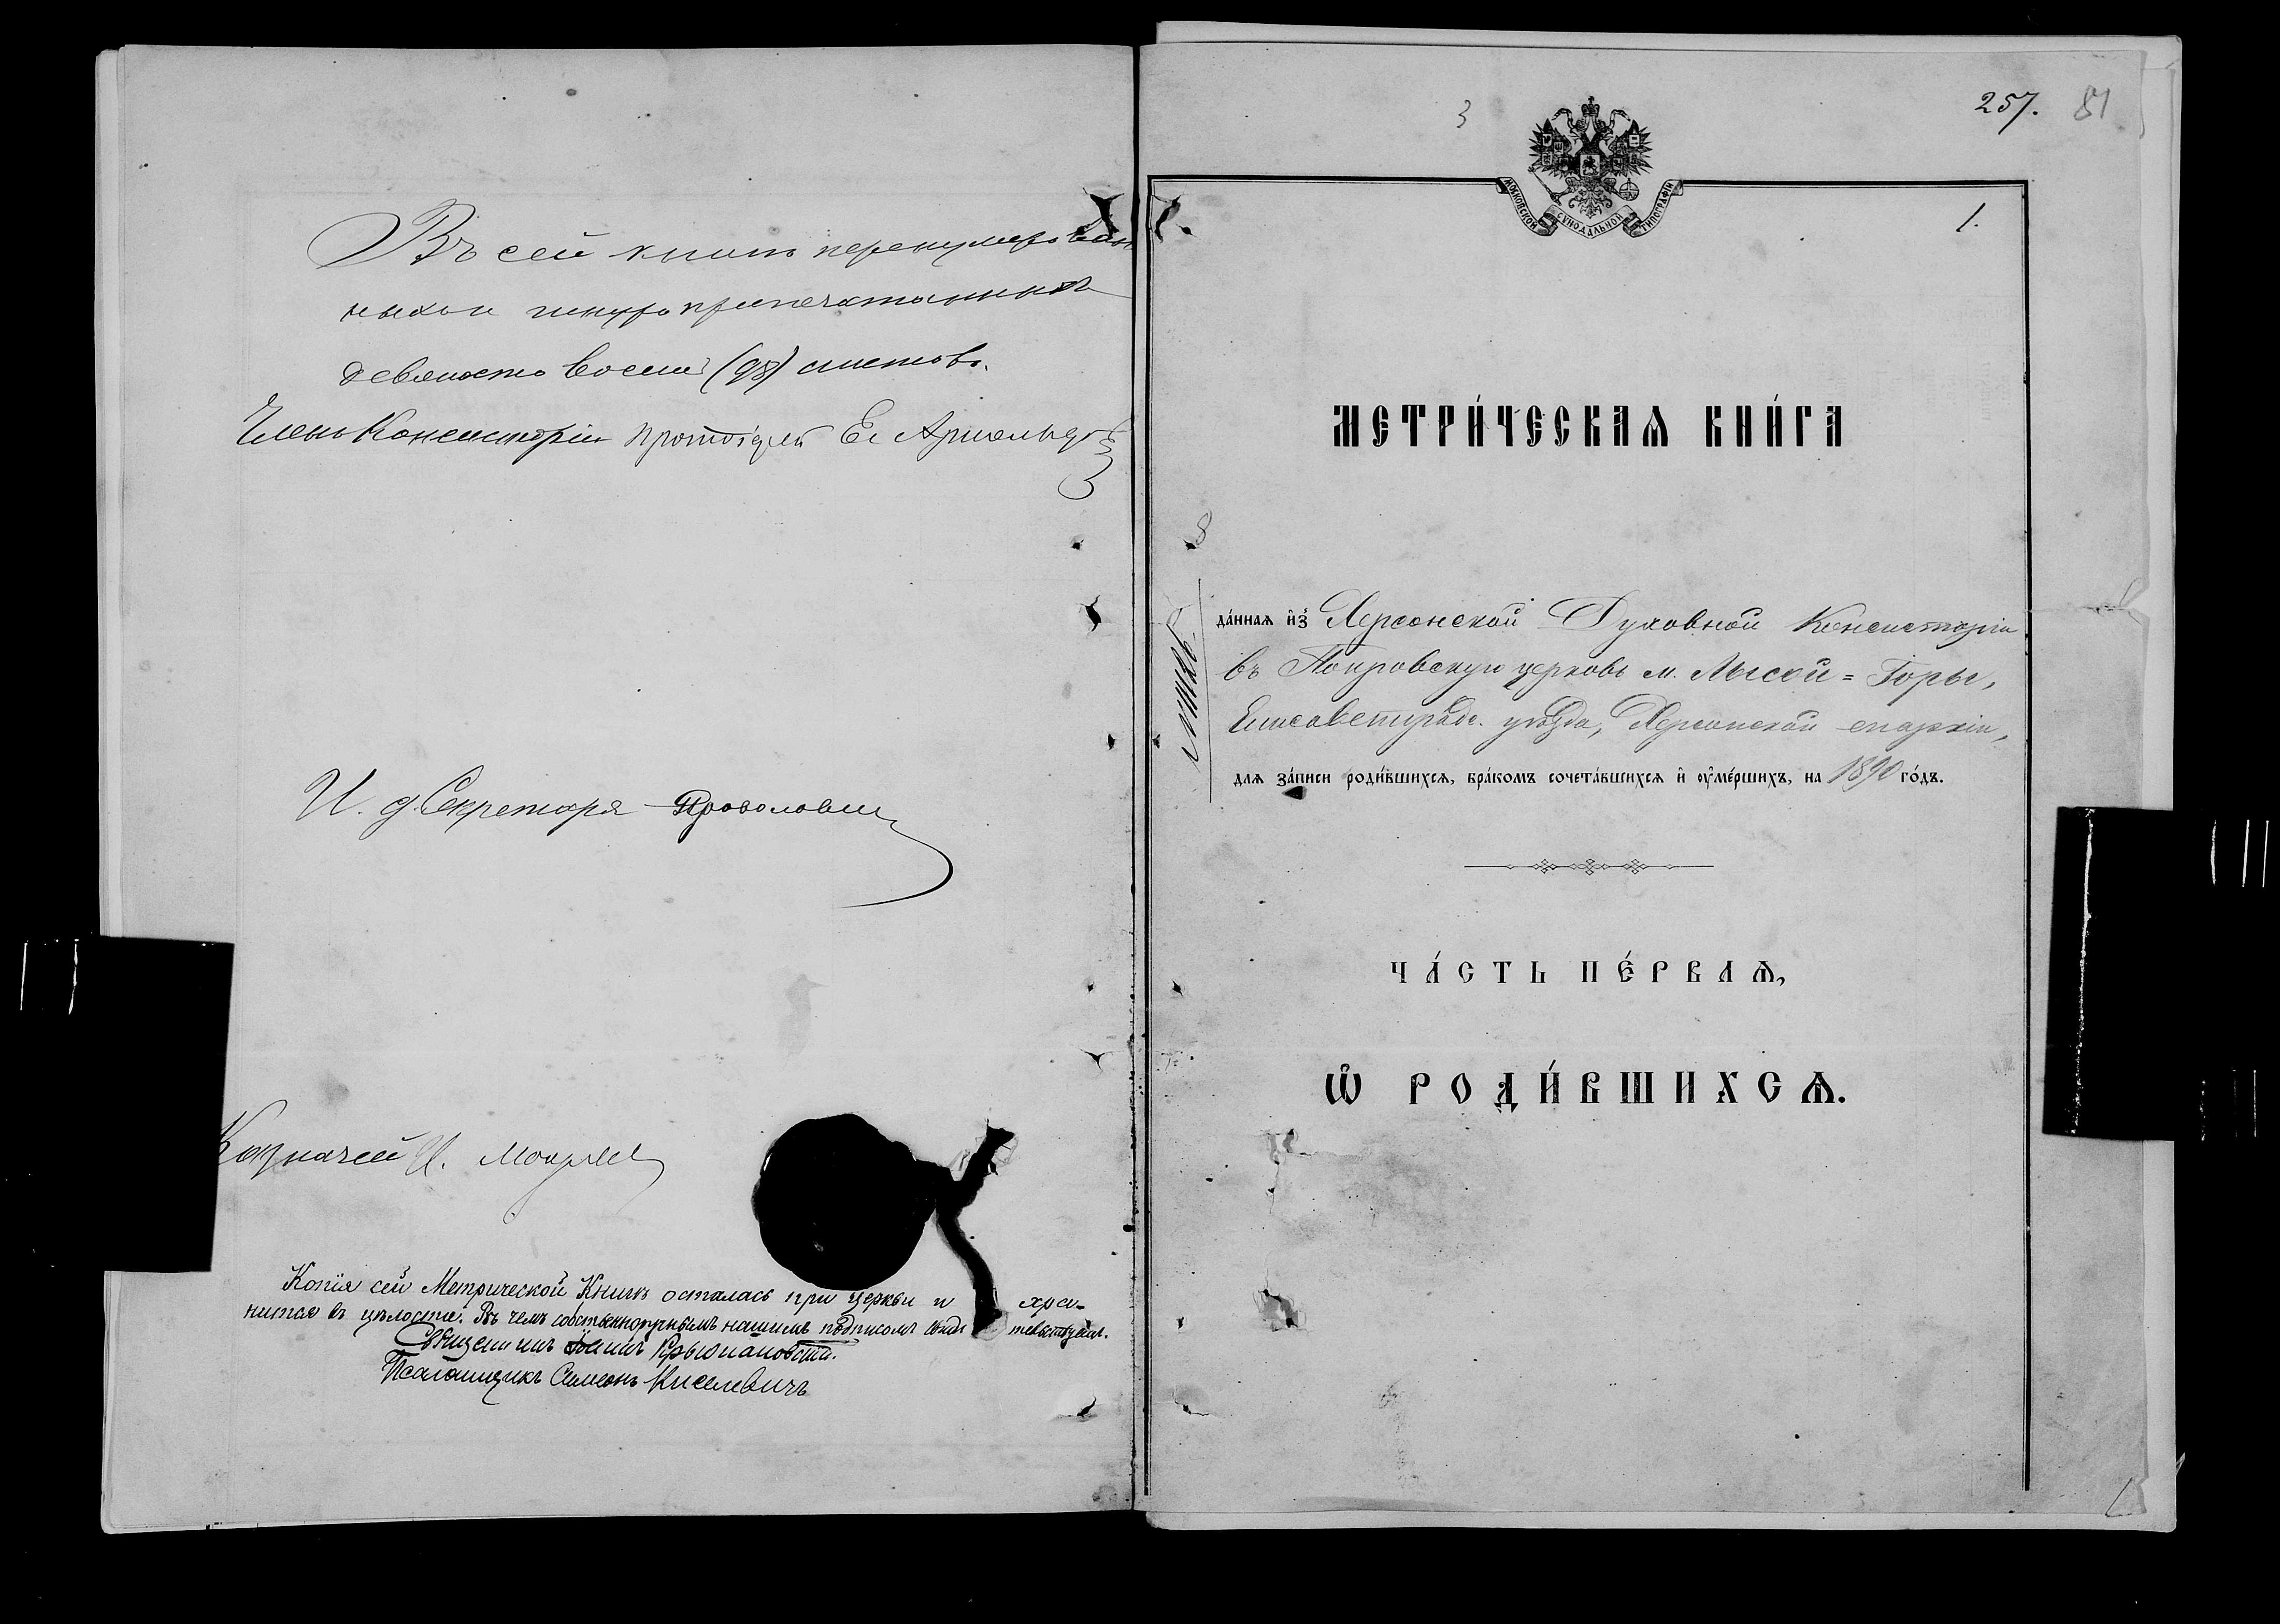 Въ сей книгѣ перенумерован
ныхъ и шнуро припечатанныхъ
девяносто восемь (98) листовъ.
Членъ Консисторіи протоіерей
И. д. Секретаря
Казначей И.
Копія сей Метрической Книги осталась при церкви и хра-
нится въ цѣлости. Въ чемъ собственноручнымъ нашимъ подписомъ свидѣтельствуемъ.
Священникъ
Псаломщикъ Симеонъ Киселевичъ
3
257. 81
МОСКОВСКОЙ СѴНОДАЛЬНОЙ ТИПОГРАФІИ
1.
МЕТРИ́ЧЕСКАѦ КНИ́ГА
8
да́ннаѧ и҆з̾ Херсонской Духовной Консисторіи
въ Покровскую церковь м. Лысой = Горы,
Елисаветградс. уѣзда, Херсонской епархіи,
длѧ за́писи роди́вшихсѧ, бра́комъ сочета́вшихсѧ и҆ ѹ҆ме́ршихъ, на 1890 го́дъ.
ЧА́СТЬ ПЕ́РВАѦ,
Ѡ҆ РОДИ́ВШИХСѦ.